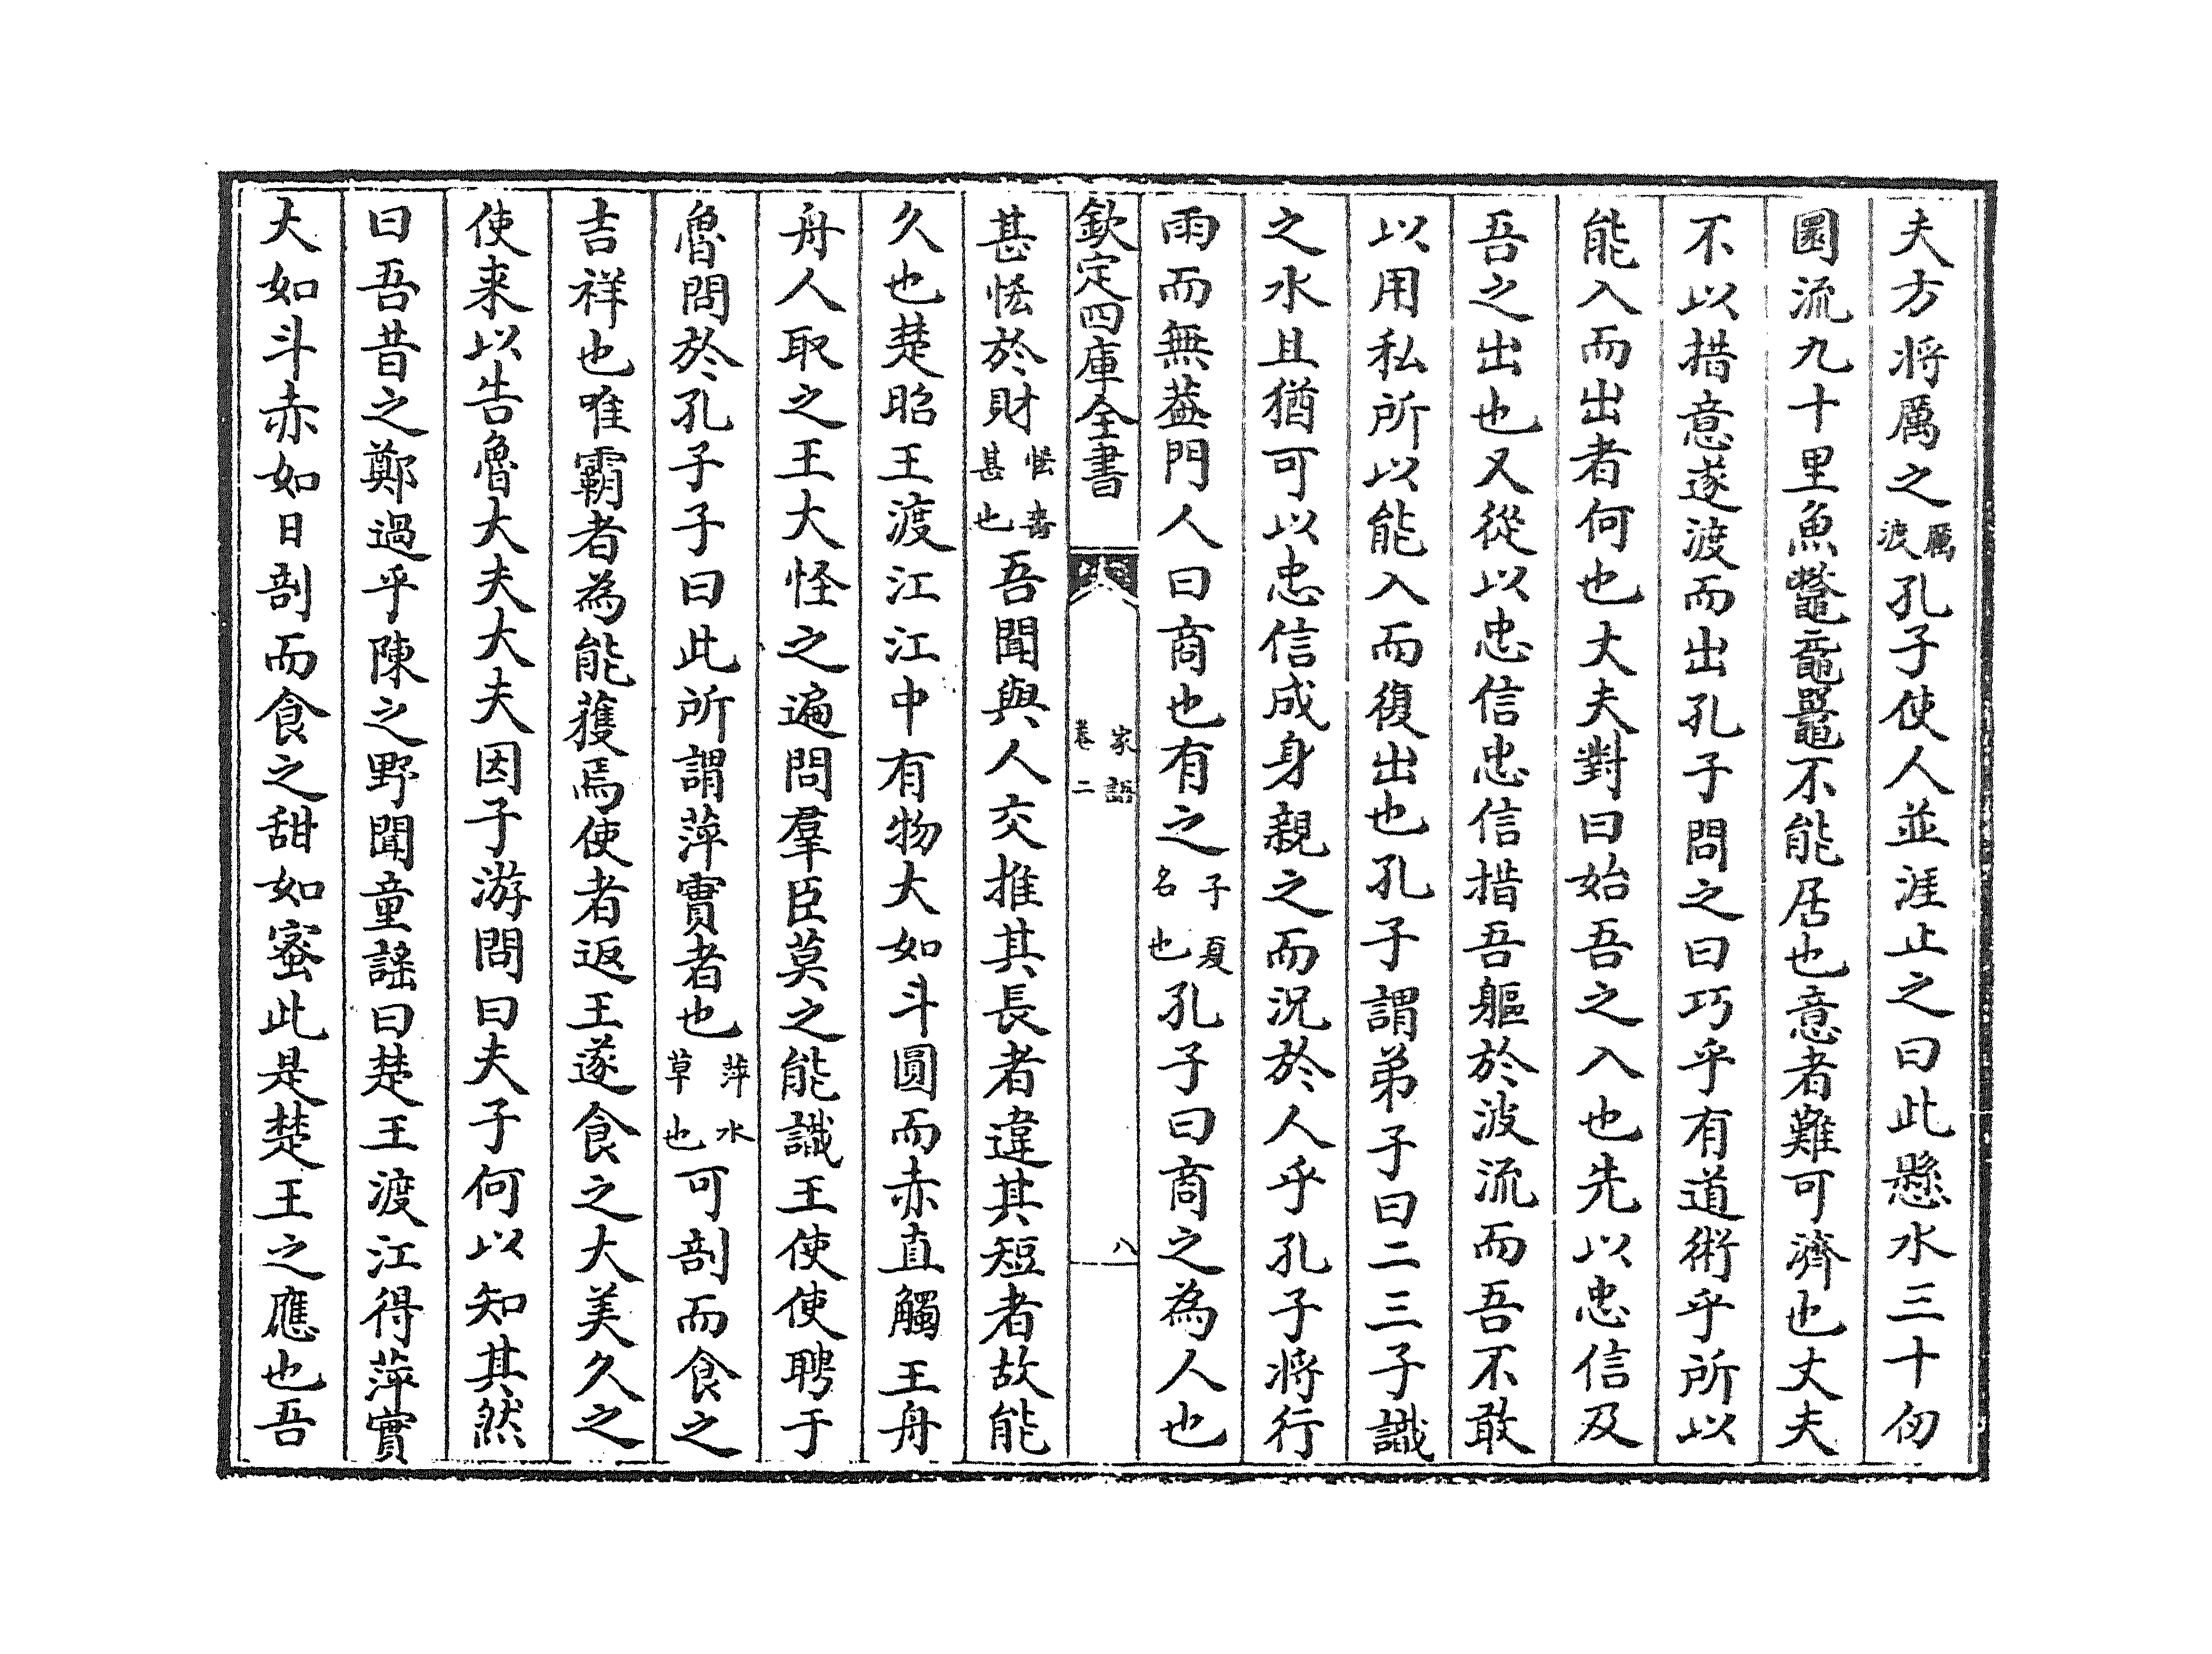 夫方將厲之厲渡孔子使人並涯止之曰此懸水三十仞
圜流九十里魚鼈黿鼉不能居也意者難可濟也丈夫
不以措意遂渡而出孔子問之曰巧乎有道術乎所以
能入而出者何也丈夫對曰始吾之入也先以忠信及
吾之出也又從以忠信忠信措吾軀於波流而吾不敢
以用私所以能入而復出也孔子謂弟子曰二三子識
之水且猶可以忠信成身親之而況於人乎孔子將行
雨而無蓋門人曰商也有之子夏名也孔子曰商之為人也
欽定四庫全書
家語
卷二
八
甚恡於財恡嗇甚也吾聞與人交推其長者違其短者故能
久也楚昭王渡江江中有物大如斗圓而赤直觸王舟
舟人取之王大怪之遍問羣臣莫之能識王使使聘于
魯問於孔子子曰此所謂萍實者也萍水草也可剖而食之
吉祥也唯霸者為能獲焉使者返王遂食之大美久之
使来以告魯大夫大夫因子游問曰夫子何以知其然
曰吾昔之鄭過乎陳之野聞童謠曰楚王渡江得萍實
大如斗赤如日剖而食之甜如蜜此是楚王之應也吾